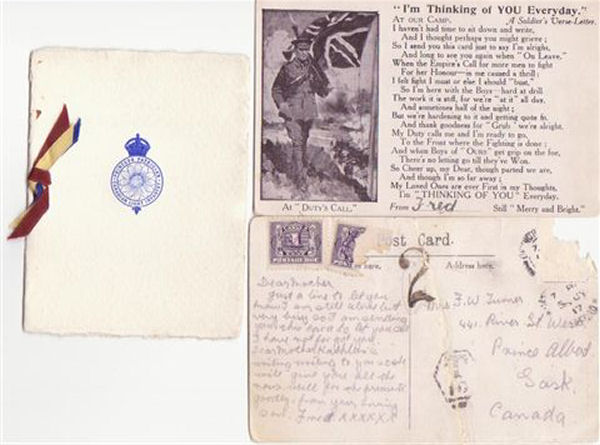 PRINCESS PATRICIA'S
CANADIAN LIGHT INFANTRY
"I'm Thinking of YOU Everyday."
AT OUR CAMP. A Soldier's Verse-Letter.
I haven't had time to sit down and write,
And I thought perhaps you might grieve;
So I send you this card just to say I'm alright,
And long to see you again when "On Leave."
When the Empire's Call for more men to fight
For her Honour—in me caused a thrill;
I felt fight I must or else I should "bust,"
So I'm here with the Boys—hard at drill.
The work it is stiff, for we're "at it" all day,
And sometimes half of the night;
But we're hardening to it and getting quite fit,
And thank goodness for "Grub" we're alright.
My Duty calls me and I'm ready to go,
To the Front where the Fighting is done;
And when Boys of "Ours" get grip on the foe,
There's no letting go till they've Won.
So Cheer up, my Dear, though parted we are,
And though I'm so far away;
My Loved Ones are ever First in my Thoughts,
I'm "THINKING OF YOU" Everyday.
At "Duty's Call."
From Fred Still "Merry and Bright."
1
POSTAGE DUE
Post Card.
here. Address here.
2
Dear Mother
Just a line to let you
know I am still alive but
very busy so I am sending
you this card to let you see
I have not forgot you.
Dear Mother Kathleen's
writing to you so she
will give you all the
news well for the present
from your loving
son. Fred xxxxxx
Mrs F. W. Turner
441. River St West
Prince Albert
Sask.
Canada.